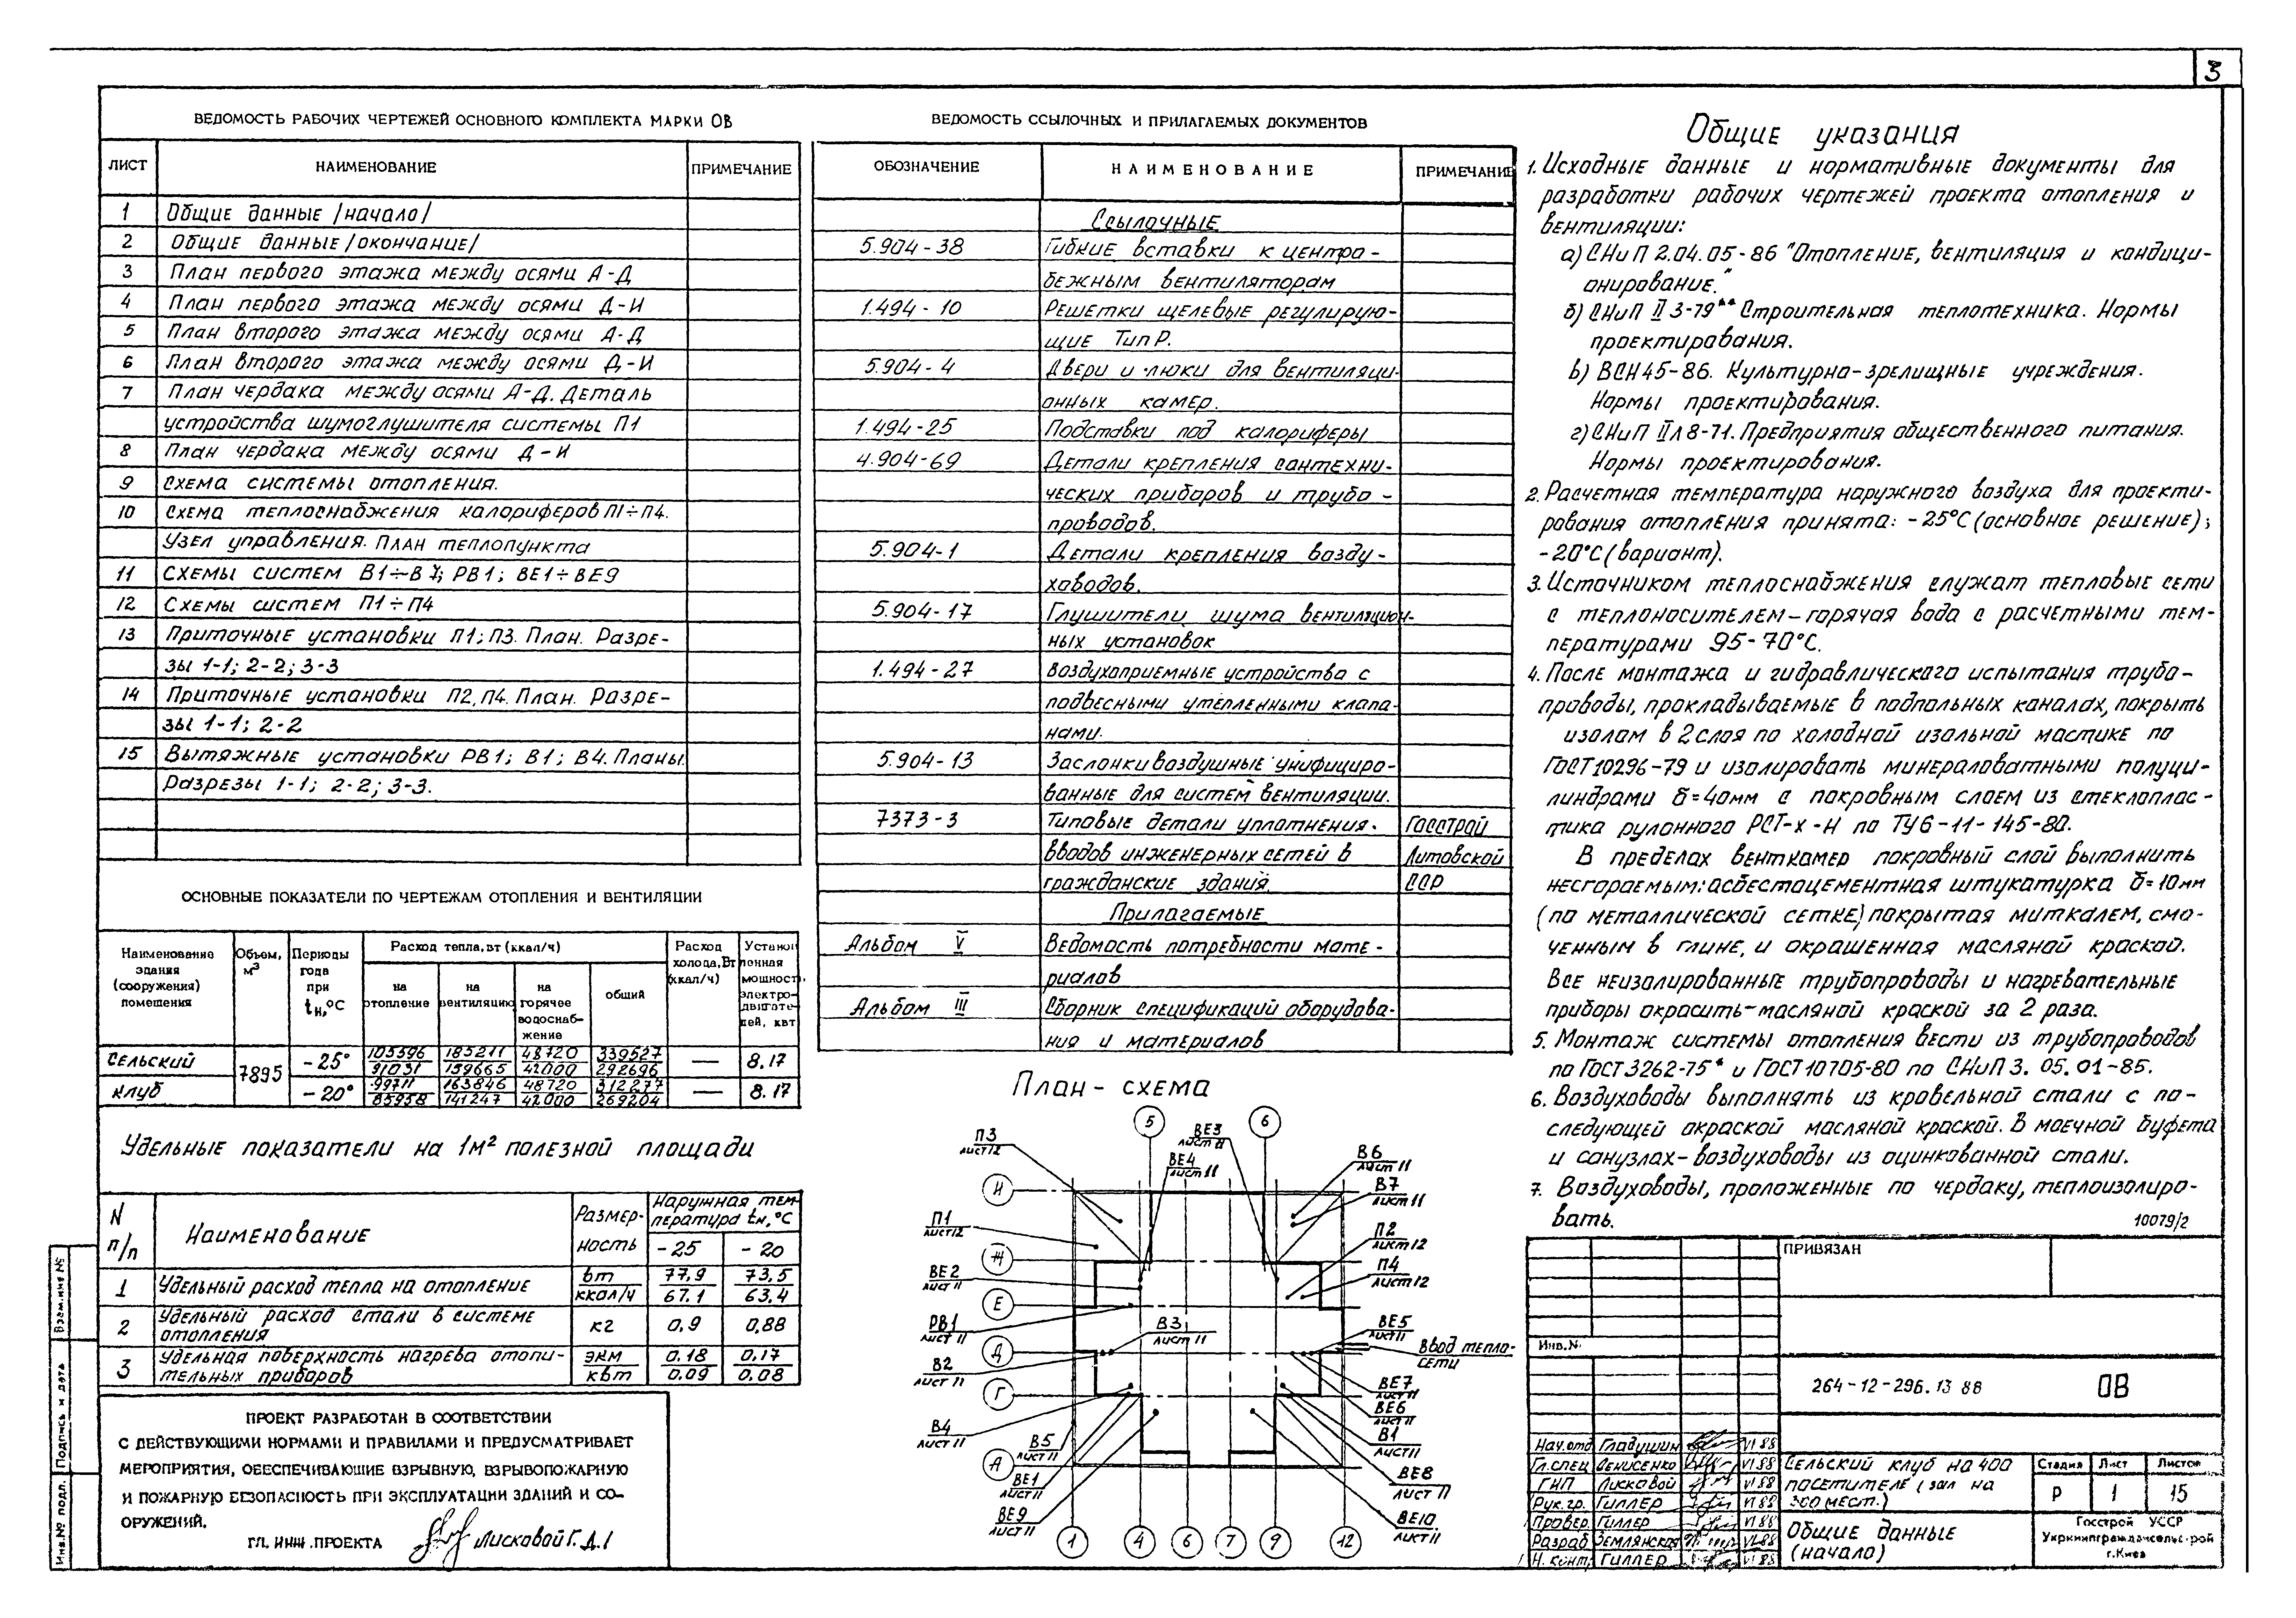 3
ВЕДОМОСТЬ РАБОЧИХ ЧЕРТЕЖЕЙ ОСНОВНОГО КОМПЛЕКТА МАРКИ ОВ
ЛИСТ НАИМЕНОВАНИЕ ПРИМЕЧАНИЕ
1 Общие данные /начало/
2 Общие данные /окончание/
3 План первого этажа между осями А-Д
4 План первого этажа между осями Д-И
5 План второго этажа между осями А-Д
6 План второго этажа между осями Д-И
7 План чердака между осями А-Д. Деталь
устройства шумоглушителя системы П1
8 План чердака между осями Д-И
9 Схема системы отопления.
10 Схема теплоснабжения калориферов П1÷П4.
Узел управления. План теплопункта
11 Схемы систем В1÷В7; РВ1; ВЕ1÷ВЕ9
12 Схемы систем П1÷П4
13 Приточные установки П1; П3. План. Разре-
зы 1-1; 2-2; 3-3
14 Приточные установки П2, П4. План. Разре-
зы 1-1; 2-2
15 Вытяжные установки РВ1; В1; В4. Планы.
Разрезы 1-1; 2-2; 3-3.
ОСНОВНЫЕ ПОКАЗАТЕЛИ ПО ЧЕРТЕЖАМ ОТОПЛЕНИЯ И ВЕНТИЛЯЦИИ
Наименование здания (сооружения) помещения
Объем, м³
Периоды года при tн,°С
Расход тепла, вт (ккал/ч)
на отопление
на вентиляцию
на горячее водоснаб-жение
общий
Расход холода, Вт (ккал/ч)
Установленная мощность электро-двигате-лей, квт
Сельский клуб 7895
-25° 105596/91031 185211/159665 48720/42000 339527/292696 — 8.17
-20° 99711/85958 163846/141247 48720/42000 312277/269204 — 8.17
Удельные показатели на 1м² полезной площади
N п/п Наименование Размер-ность Наружная тем-пература tн,°С
-25 -20
1 Удельный расход тепла на отопление вт/ккал/ч 77,9/67.1 73,5/63.4
2 Удельный расход стали в системе
отопления кг 0,9 0,88
3 Удельная поверхность нагрева отопи-
тельных приборов экм/квт 0.18/0.09 0.17/0.08
ПРОЕКТ РАЗРАБОТАН В СООТВЕТСТВИИ
С ДЕЙСТВУЮЩИМИ НОРМАМИ И ПРАВИЛАМИ И ПРЕДУСМАТРИВАЕТ
МЕРОПРИЯТИЯ, ОБЕСПЕЧИВАЮЩИЕ ВЗРЫВНУЮ, ВЗРЫВОПОЖАРНУЮ
И ПОЖАРНУЮ БЕЗОПАСНОСТЬ ПРИ ЭКСПЛУАТАЦИИ ЗДАНИЙ И СО-
ОРУЖЕНИЙ.
ГЛ. ИНЖ. ПРОЕКТА Лисковой Г.Д.
Взам.инв №
Подпись и дата
Инв.№ подл.
ВЕДОМОСТЬ ССЫЛОЧНЫХ И ПРИЛАГАЕМЫХ ДОКУМЕНТОВ
ОБОЗНАЧЕНИЕ НАИМЕНОВАНИЕ ПРИМЕЧАНИЕ
Ссылочные
5.904-38 Гибкие вставки к центро-
бежным вентиляторам
1.494-10 Решетки щелевые регулирую-
щие Тип Р.
5.904-4 Двери и люки для вентиляци-
онных камер.
1.494-25 Подставки под калориферы
4.904-69 Детали крепления сантехни-
ческих приборов и трубо-
проводов.
5.904-1 Детали крепления возду-
ховодов.
5.904-17 Глушители шума вентиляцион-
ных установок
1.494-27 Воздухоприемные устройства с
подвесными утепленными клапа-
нами.
5.904-13 Заслонки воздушные унифициро-
ванные для систем вентиляции.
7373-3 Типовые детали уплотнения Госстрой
вводов инженерных сетей в Литовской
гражданские здания. ССР
Прилагаемые
Альбом V Ведомость потребности мате-
риалов
Альбом III Сборник спецификаций оборудова-
ния и материалов
План-схема
5 6
П3 лист 12
ВЕ3
ВЕ4 лист 11
В6 лист 11
В7 лист 11
И
П1 лист 12
П2 лист 12
Ж
П4 лист 12
ВЕ2 лист 11
Е
РВ1 лист 11
В3 лист 11
ВЕ5 лист 11
Ввод тепло-
сети
Д
В2 лист 11
ВЕ7 лист 11
Г
ВЕ6 лист 11
В4 лист 11
В5 лист 11
В1 лист 11
А
ВЕ1 лист 11
ВЕ8 лист 11
ВЕ9 лист 11
ВЕ10 лист 11
1 4 6 7 9 12
Общие указания
1. Исходные данные и нормативные документы для
разработки рабочих чертежей проекта отопления и
вентиляции:
а) СНиП 2.04.05-86 "Отопление, вентиляция и кондици-
онирование."
б) СНиП II 3-79** Строительная теплотехника. Нормы
проектирования.
в) ВСН 45-86. Культурно-зрелищные учреждения.
Нормы проектирования.
г) СНиП II Л 8-71. Предприятия общественного питания.
Нормы проектирования.
2. Расчетная температура наружного воздуха для проекти-
рования отопления принята: -25°С (основное решение);
-20°С (вариант).
3. Источником теплоснабжения служат тепловые сети
с теплоносителем-горячая вода с расчетными тем-
пературами 95-70°С.
4. После монтажа и гидравлического испытания трубо-
проводы, прокладываемые в подпольных каналах, покрыть
изолом в 2 слоя по холодной изольной мастике по
ГОСТ 10296-79 и изолировать минераловатными полуци-
линдрами δ=40мм с покровным слоем из стеклоплас-
тика рулонного РСТ-Х-Н по ТУ6-11-145-80.
В пределах венткамер покровный слой выполнить
несгораемым: асбестоцементная штукатурка δ=10мм
(по металлической сетке) покрытая миткалем, смо-
ченным в глине, и окрашенная масляной краской.
Все неизолированные трубопроводы и нагревательные
приборы окрасить масляной краской за 2 раза.
5. Монтаж системы отопления вести из трубопроводов
по ГОСТ 3262-75* и ГОСТ 10705-80 по СНиП 3.05.01-85.
6. Воздуховоды выполнять из кровельной стали с по-
следующей окраской масляной краской. В моечной буфета
и санузлах-воздуховоды из оцинкованной стали.
7. Воздуховоды, проложенные по чердаку, теплоизолиро-
вать.
10079/2
ПРИВЯЗАН
Инв.№
264-12-296.13 88 ОВ
Нач.отд Гладушин VI 88
Гл.спец Денисенко VI 88
ГИП Лисковой VI 88
Рук.гр. Гиллер VI 88
Провер. Гиллер VI 88
Разраб Землянская VI 88
Н.конт. Гиллер VI 88
Сельский клуб на 400
посетителе (зал на
300 мест.)
Стадия Лист Листов
Р 1 15
Общие данные
(начало)
Госстрой УССР
г.Киев